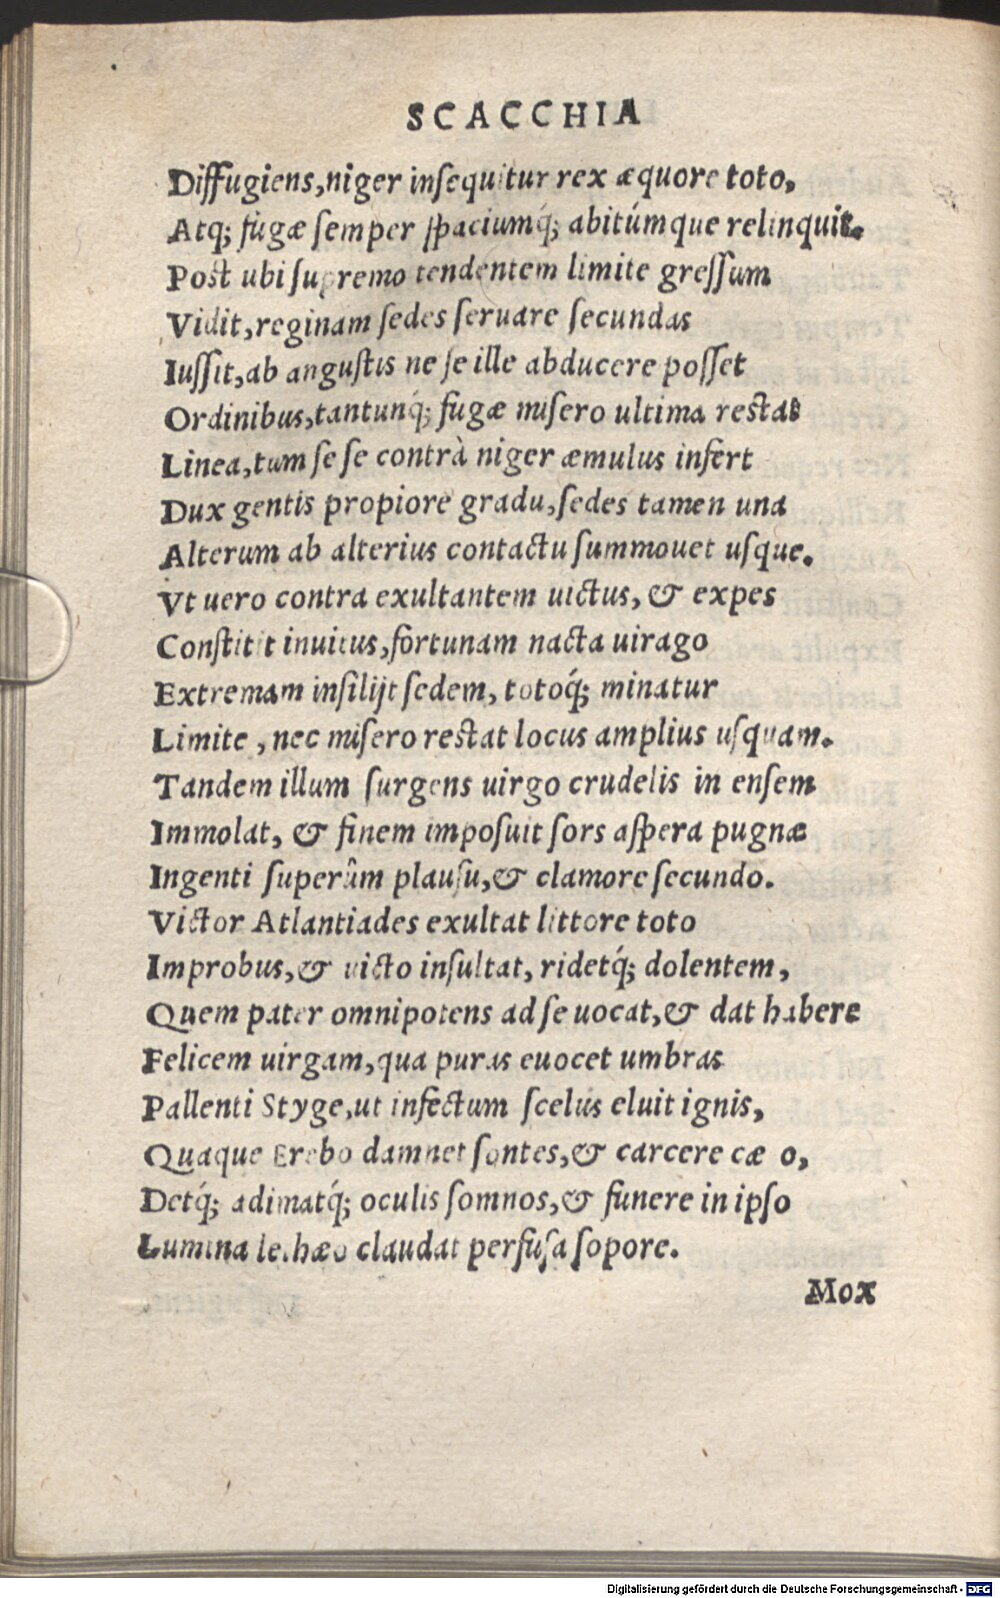 SCACCHIA
Diffugiens,niger insequitur rex æquore toto,
Atq; fugæ semper spaciumq́; abitúmque relinquit.
Post ubi supremo tendentem limite gressum
Vidit,reginam sedes seruare secundas
Iussit,ab angustis ne se ille abducere posset
Ordinibus,tantunq́; fugæ misero ultima restat
Linea,tum se se contrà niger æmulus infert
Dux gentis propiore gradu,sedes tamen una
Alterum ab alterius contactu summouet usque.
Vt uero contra exultantem uictus, & expes
Constitit inuitus,fortunam nacta uirago
Extremam insilijt sedem, totoq́; minatur
Limite , nec misero restat locus amplius usquam.
Tandem illum surgens uirgo crudelis in ensem
Immolat, & finem imposuit sors aspera pugnæ
Ingenti superûm plausu,& clamore secundo.
Victor Atlantiades exultat littore toto
Improbus,& uicto insultat, ridetq́; dolentem,
Quem pater omnipotens ad se uocat,& dat habere
Felicem uirgam,qua puras euocet umbras
Pallenti Styge,ut infectum scelus eluit ignis,
Quaque Erebo damnet sontes,& carcere cæ o,
Detq́; adimatq́; oculis somnos,& funere in ipso
Lumina lethæo claudat perfusa sopore.
Mox
Digitalisierung gefördert durch die Deutsche Forschungsgemeinschaft - DFG